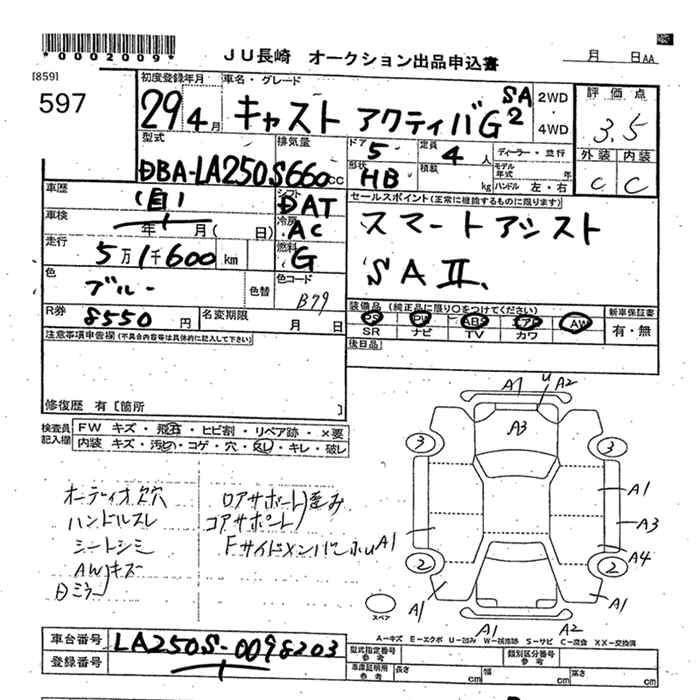 *0002009*
JU長崎 オークション出品申込書
月 日AA
[859]
597
初度登録年月
29 4月
車名・グレード
キャスト アクティバG SA2
2WD・4WD
評価点
3.5
外装 内装
C C
型式
DBA-LA250S
排気量
660cc
ドア
5
定員
4人
ディーラー・並行
形状
HB
積載 kg
モデル年式 年
ハンドル 左・右
車歴
(自)
シフト
DAT
車検
年 月(日)
冷房
AC
走行
5万1千600km
燃料
G
セールスポイント(正常に機能するものに限ります)
スマートアシスト
SAⅡ.
色
ブルー
色替
色コード
B79
R券
8550円
名変期限
月 日
装備品(純正品に限り○をつけてください)
PS PW ABS エア AW
SR ナビ TV カワ
新車保証書
有・無
後日品
注意事項申告欄(不具合内容等は具体的に記入して下さい)
修復歴 有[箇所 ]
検査員記入欄
FW キズ・飛石・ヒビ割・リペア跡・×要
内装 キズ・汚れ・コゲ・穴・スレ・キレ・破レ
オーディオ欠穴
ハンドルスレ
シートシミ
AWキズ
日ミラー
ロアサポート 歪み
コアサポート
Fサイドメンバー凹U
A1 U A2
A3
3 3
A1
A3
A1
A4
2 2
A1 A1
A1 A2
スペア
A-キズ E-エクボ U-凹み W-補修跡 S-サビ C-腐食 XX-交換済
車台番号
LA250S-0098203
登録番号
型式指定番号 参考
類別区分番号 参考
車庫証明用 参考
長さ cm 幅 cm 高さ cm